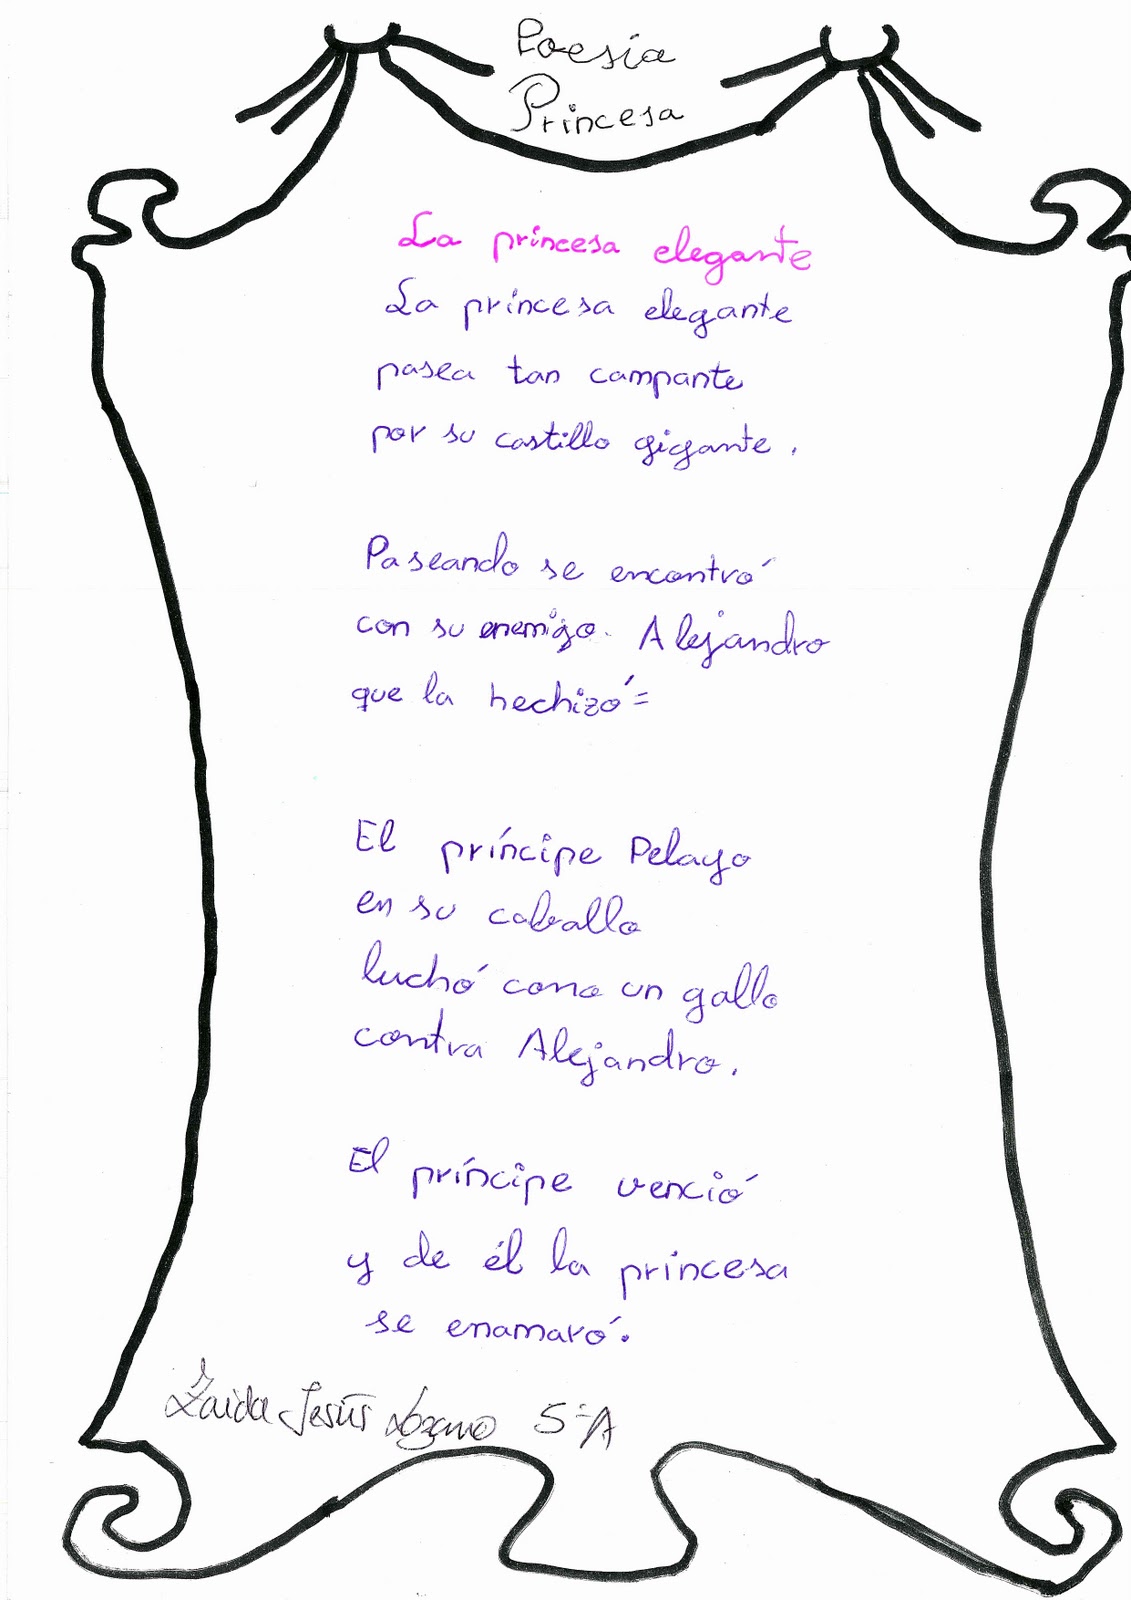 Poesía
Princesa
La princesa elegante
La princesa elegante
pasea tan campante
por su castillo gigante.
Paseando se encontró
con su enemigo. Alejandro
que la hechizó=
El príncipe Pelayo
en su caballo
luchó como un gallo
contra Alejandro.
El príncipe venció
y de él la princesa
se enamoró.
Zaida Jesús Lozano 5ºA